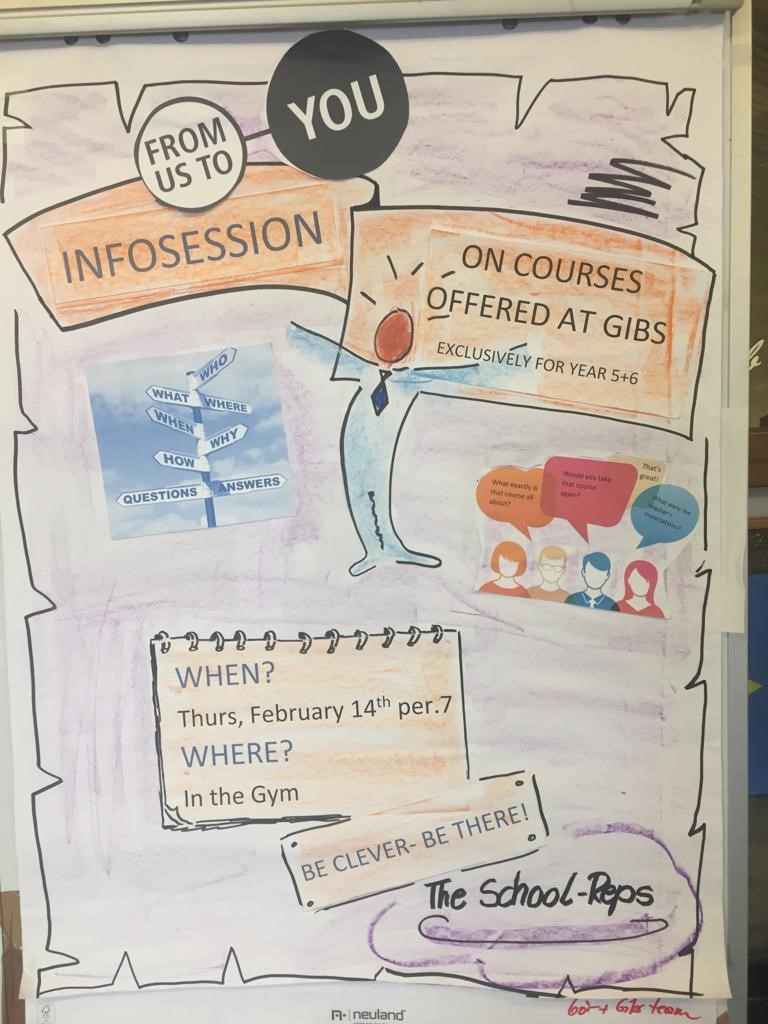 FROM
US TO
YOU
INFOSESSION
ON COURSES
OFFERED AT GIBS
EXCLUSIVELY FOR YEAR 5+6
WHO
WHAT
WHERE
WHEN
WHY
HOW
QUESTIONS
ANSWERS
What exactly is
that course all
about?
Would you take
that course
again?
That's
great!
What were the
teacher's
expectations?
WHEN?
Thurs, February 14th per.7
WHERE?
In the Gym
BE CLEVER- BE THERE!
The School-Reps
neuland
team